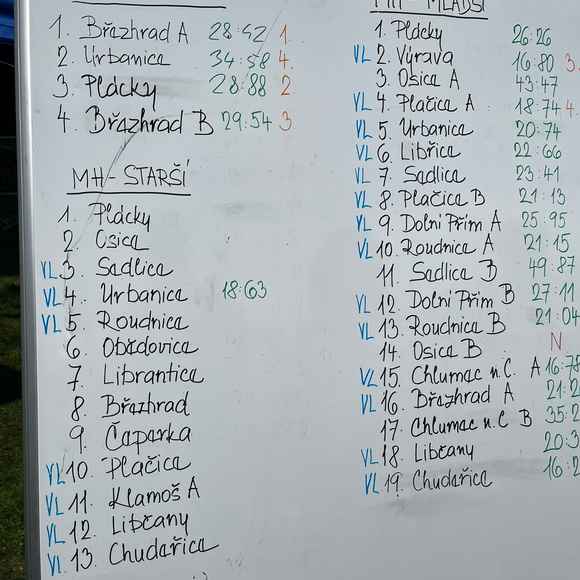 1. Březhrad A 28:42 1.
2. Urbanice 34:58 4.
3. Plácky 28:88 2.
4. Březhrad B 29:54 3.
MH - STARŠÍ
1. Plácky
2 Osice
VL 3. Sadlice
VL 4. Urbanice 18:63
VL 5. Roudnice
6. Obědovice
7. Librantice
8. Březhrad
9. Čaparka
VL 10. Plačice
VL 11. Klamoš A
VL 12. Libčany
VL 13. Chudeřice
MH - MLADŠÍ
1. Plácky 26:26
VL 2. Výrava 16:80 3.
3. Osice A 43:47
VL 4. Plačice A 18:74 4.
VL 5. Urbanice 20:74
VL 6. Libřice 22:66
VL 7. Sadlice 23:41
VL 8. Plačice B 21:13
VL 9. Dolní Přím A 25:95
VL 10. Roudnice A 21:15
11. Sadlice B 49:87
VL 12. Dolní Přím B 27:11
VL 13. Roudnice B 21:04
14. Osice B N
VL 15. Chlumec n.C. A 16:78
VL 16. Březhrad A 21:2
17. Chlumec n.C B 35:2
VL 18. Libčany 20:3
VL 19. Chudeřice 16:2